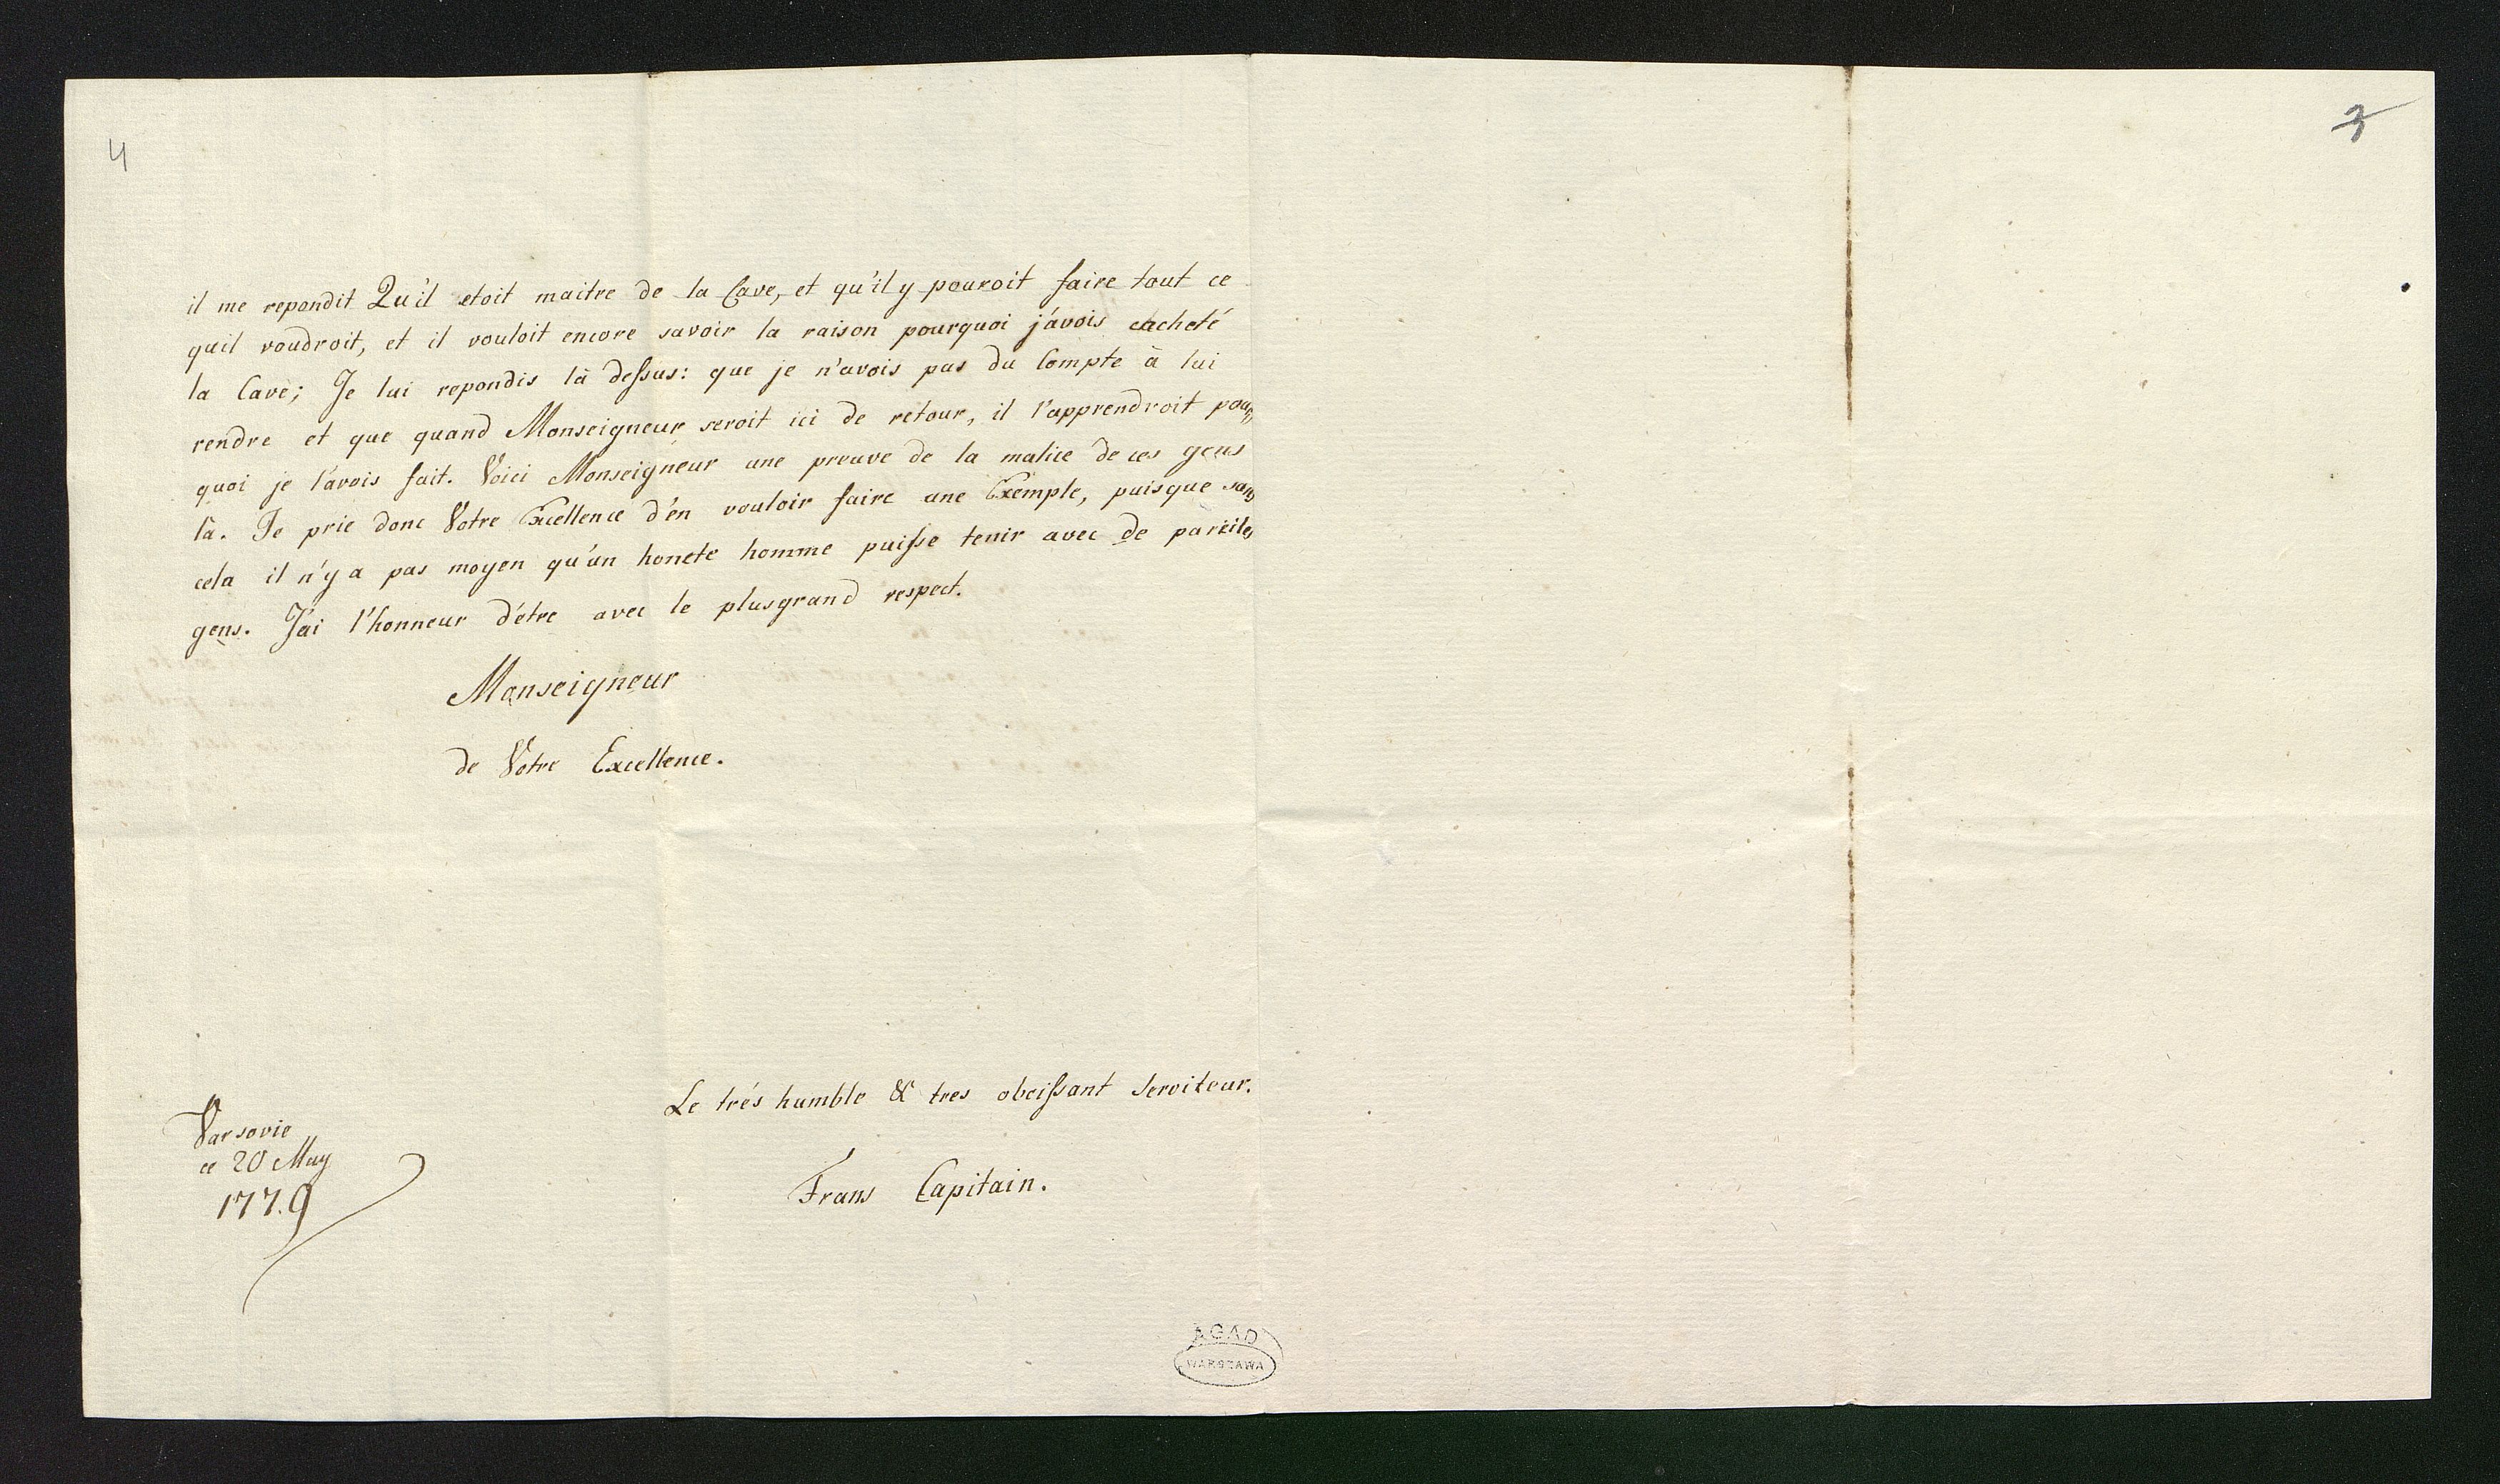 4
3
il me repondit Qu'il etoit maitre de la Cave, et qu'il y pouroit faire tout ce
qu'il voudroit, et il vouloit encore savoir la raison pourquoi j'avois cacheté
la Cave; Je lui repondis là dessus: que je n'avois pas du Compte à lui
rendre et que quand Monseigneur seroit ici de retour, il l'apprendroit pour,,
quoi je l'avois fait. Voici Monseigneur une preuve de la malice de ces gens
là. Je prie donc Votre Excellence d'en vouloir faire une Exemple, puisque sans
cela il n'y a pas moyen qu'un honete homme puisse tenir avec de pareils
gens. J'ai l'honneur d'etre avec le plus grand respect.
Monseigneur
de Votre Excellence.
Le trés humble & tres obeissant Serviteur.
Varsovie
ce 20 May
1779
Frans Capitain.
AGAD
WARSZAWA